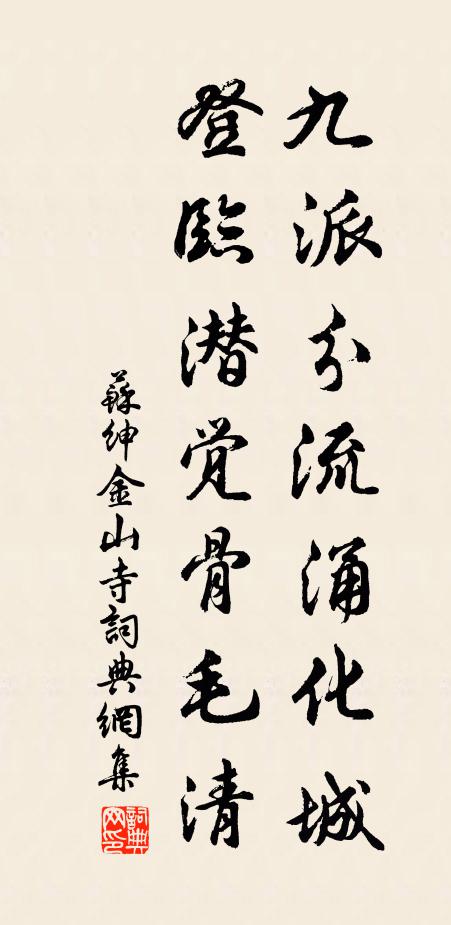 九派分流涌化城
登臨潜觉骨毛清
蘇紳金山寺詞典網集
詞典網印